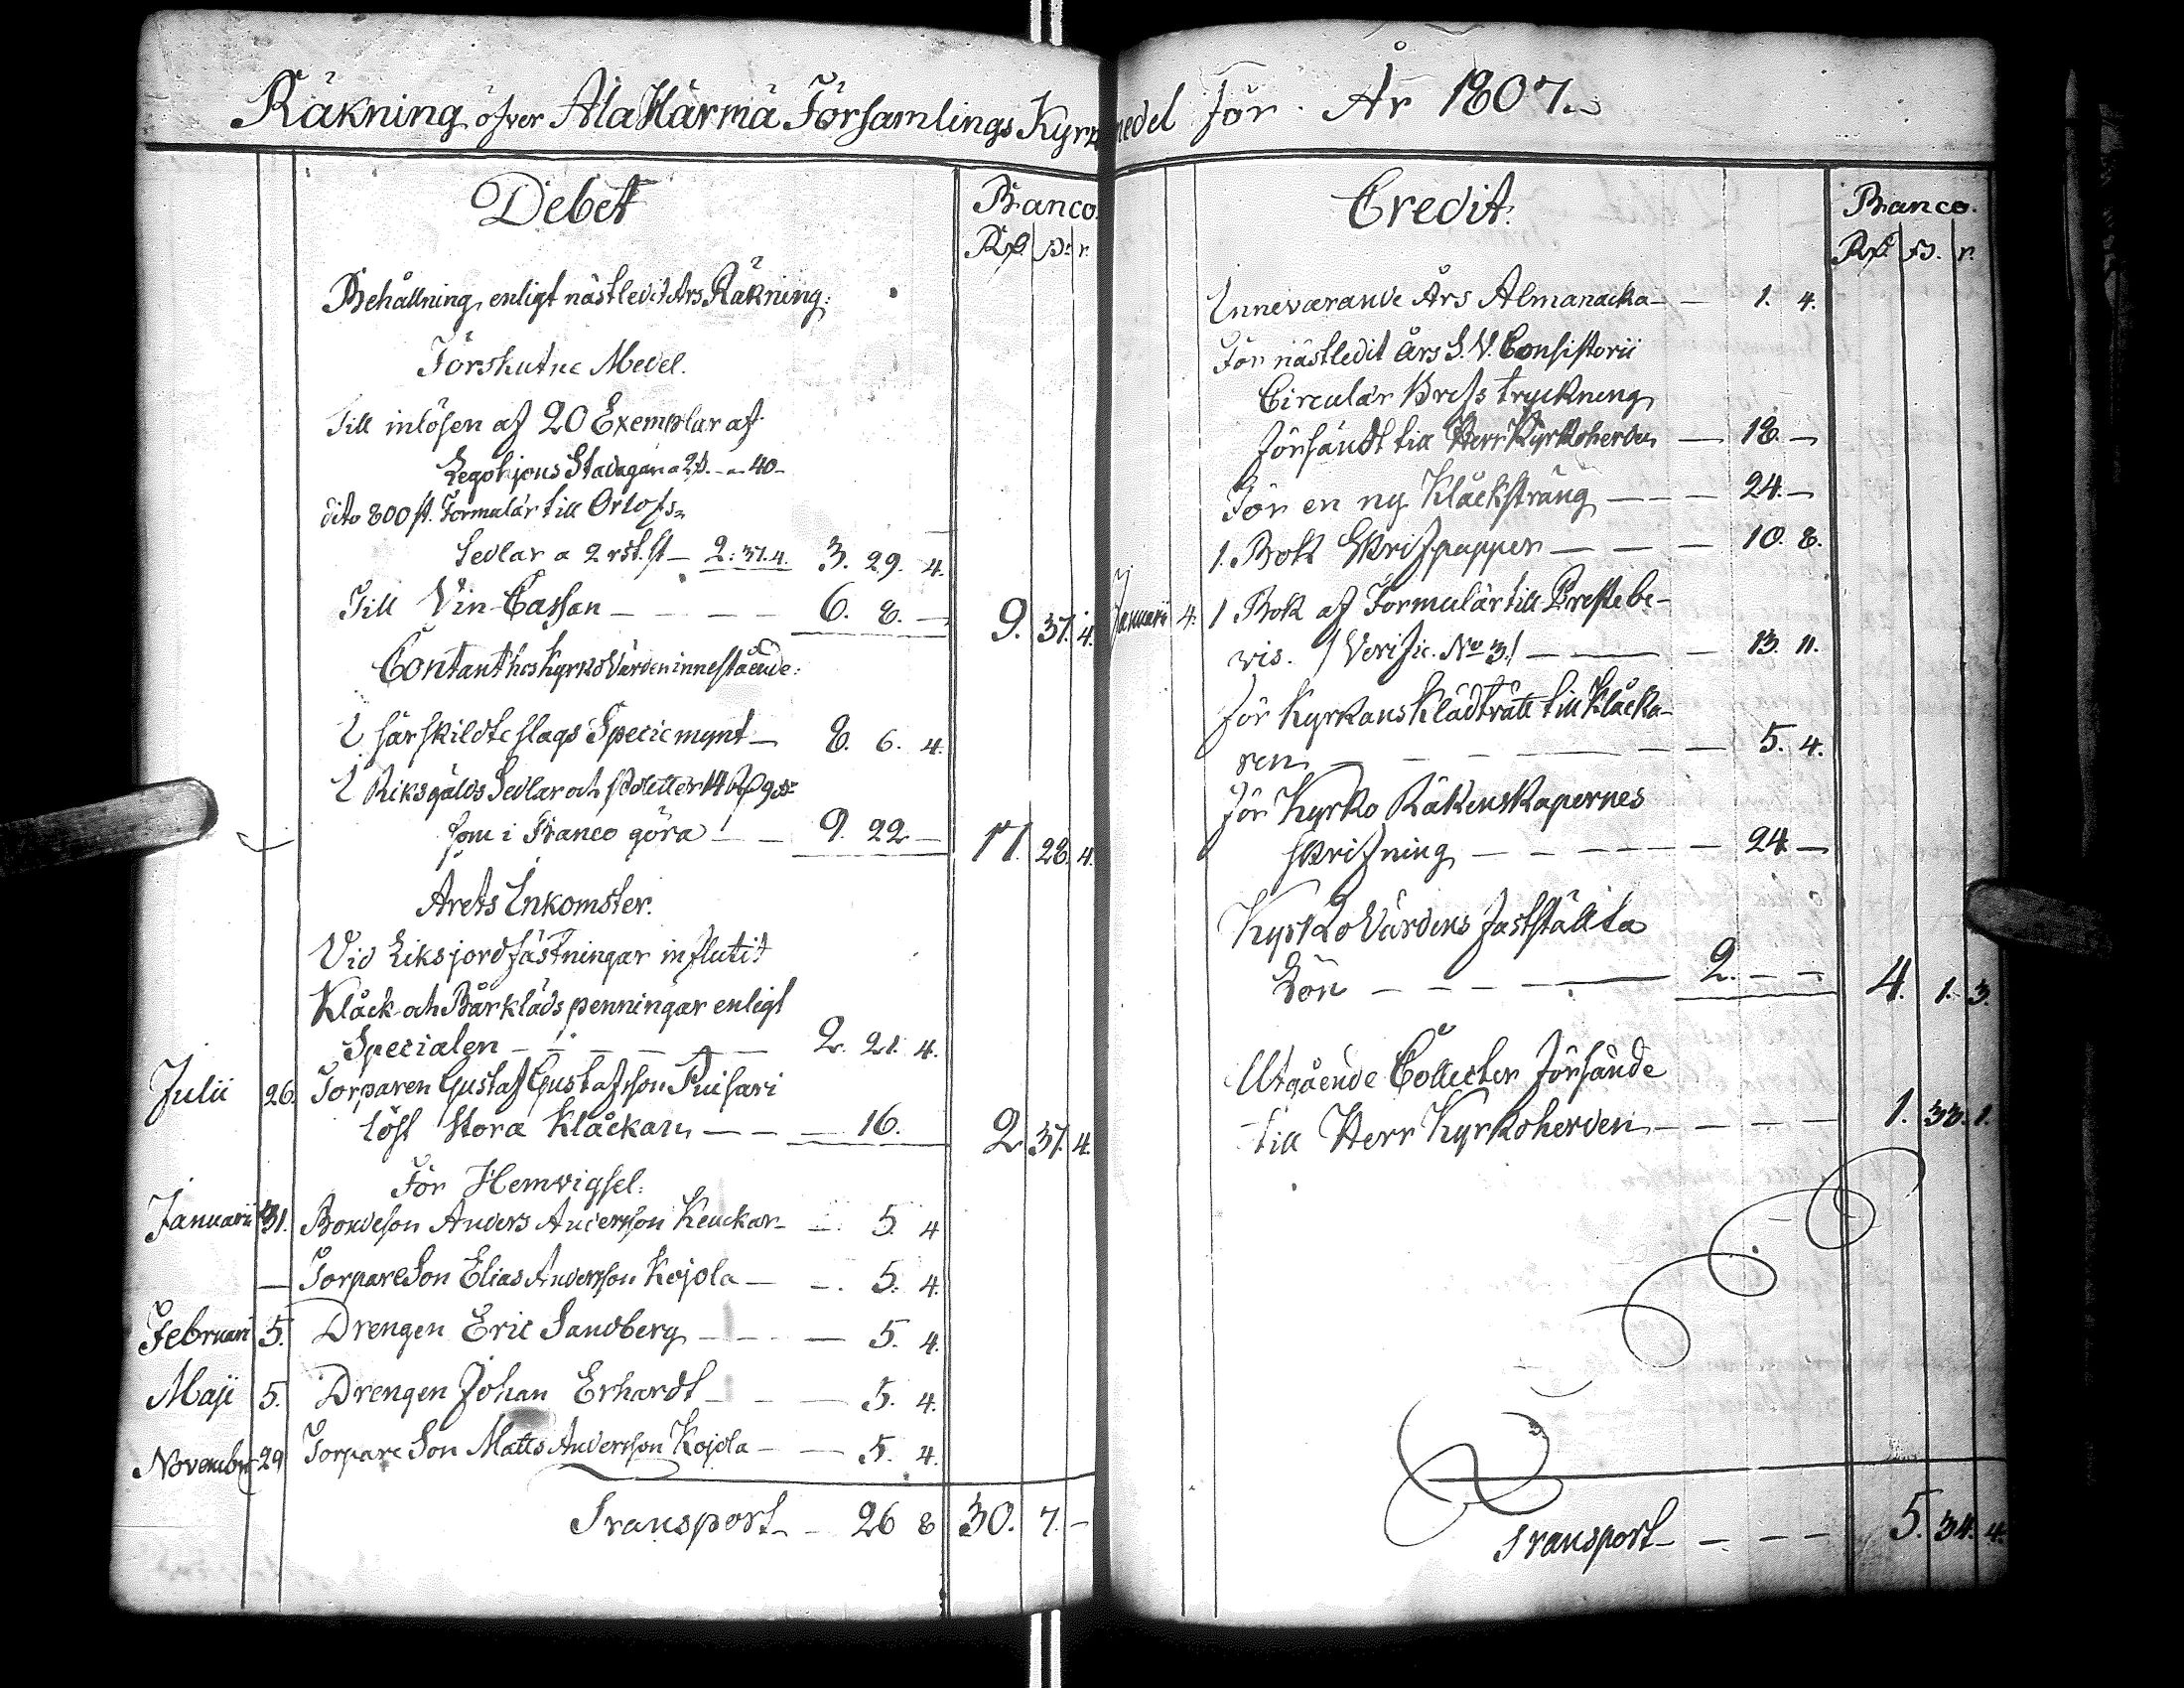 Räkning öfver Ala Härmä Församlings Kyrko
Debet
Banco.
Rd. s: r.
Behållning enligt nästledit Års Räkning:
Förskutne Medel.
Till inlösen af 20 Exemplar af
Legohjons Stadgan a 2 s. - - 40 -
dito 800 st. Formulär till Orlofs=
Sedlar a 2 rst. st - 2: 37. 4. 3. 29. 4.
Till Vin-Cassan - - - - 6. 8. - 9. 37. 4.
Contant hos Kyrko Värden innestående:
I särskildte slags Specie mynt - 8. 6. 4.
I Riksgälds Sedlar och Polletter 14 Rd 9 s:
som i Banco göra - - 9. 22 - 17. 28. 4.
Årets Inkomster.
Vid Liksjordfästningar influtit
Klåck- och Bårklädspenningar enligt
Specialen - - - - - 2. 21. 4.
Julii 26. Torparen Gustaf Gustafsson Puisari
löst Stora Klåckan - - - 16. 2 37. 4.
För Hemvigsel.
Januarii 31. Bondeson Anders Andersson Keuckar - - 5. 4
- Torpare Son Elias Andersson Kojola - - 5. 4.
Februari 5. Drengen Eric Sandberg - - - 5. 4.
Maji 5. Drengen Johan Erhardt - - - 5. 4.
Novembr 29 Torpare Son Matts Andersson Kojola - - 5. 4.
Transport - - 26 8 30. 7. -
medel för År 1807.
Credit.
Banco.
Rd. s. r.
Innevarande Års Almanacka - - 1. 4.
För nästledit Års S. V. Consistorii
Circulär Brefs tryckning
försändt till Herr Kyrkoherden - 18. -
För en ny Klåcksträng - - - 24. -
1. Bok Skrifpapper - - - 10. 8.
Januarii 4. 1 Bok af Formulär till Prestebe-
vis. /Verific. No 3./ - - - 13. 11.
För Kyrkans Klädtvätt till Klåcka-
ren - - - - - - 5. 4.
För Kyrko Räkenskapernes
skrifning - - - - - - 24 -
Kyrko Värdens fastställta
Lön - - - - - 2. - - 4. 1. 3.
Utgående Collecter försände
till Herr Kyrkoherden - - - - 1. 33. 1.
Transport - - - - 5. 34. 4.